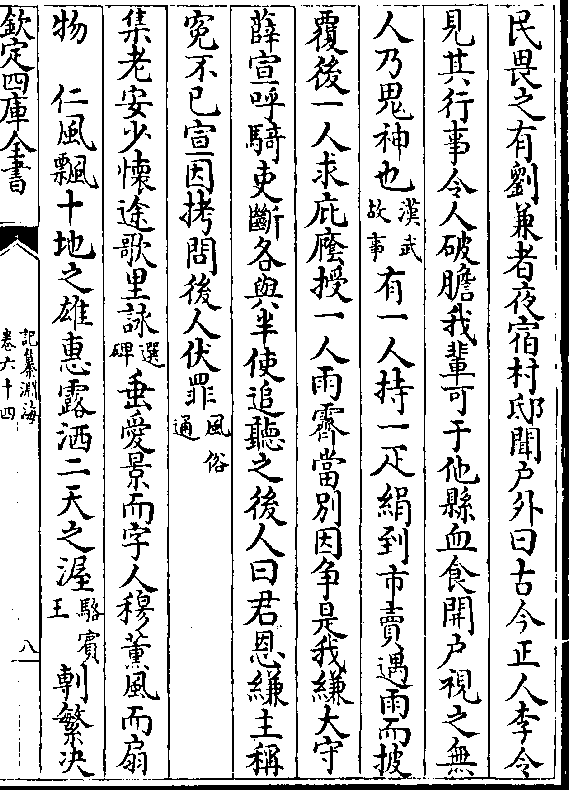 民畏之有劉兼者夜宿村邸聞户外曰古今正人李令
見其行事令人破膽我輩可于他縣血食開户視之無
人乃鬼神也漢武故事有一人持一疋絹到市賣遇雨而披
覆後一人求庇廕授一人雨霽當別因争是我縑大守
薛宣呼騎吏斷各與半使追聽之後人曰君恩縑主稱
寃不已宣因拷問後人伏罪風俗通
集老安少懷途歌里詠選碑垂愛景而字人穆薫風而扇
物　仁風飄十地之雄惠露洒二天之渥駱賓王剸繁决
欽定四庫全書
記纂淵海
卷六十四
八